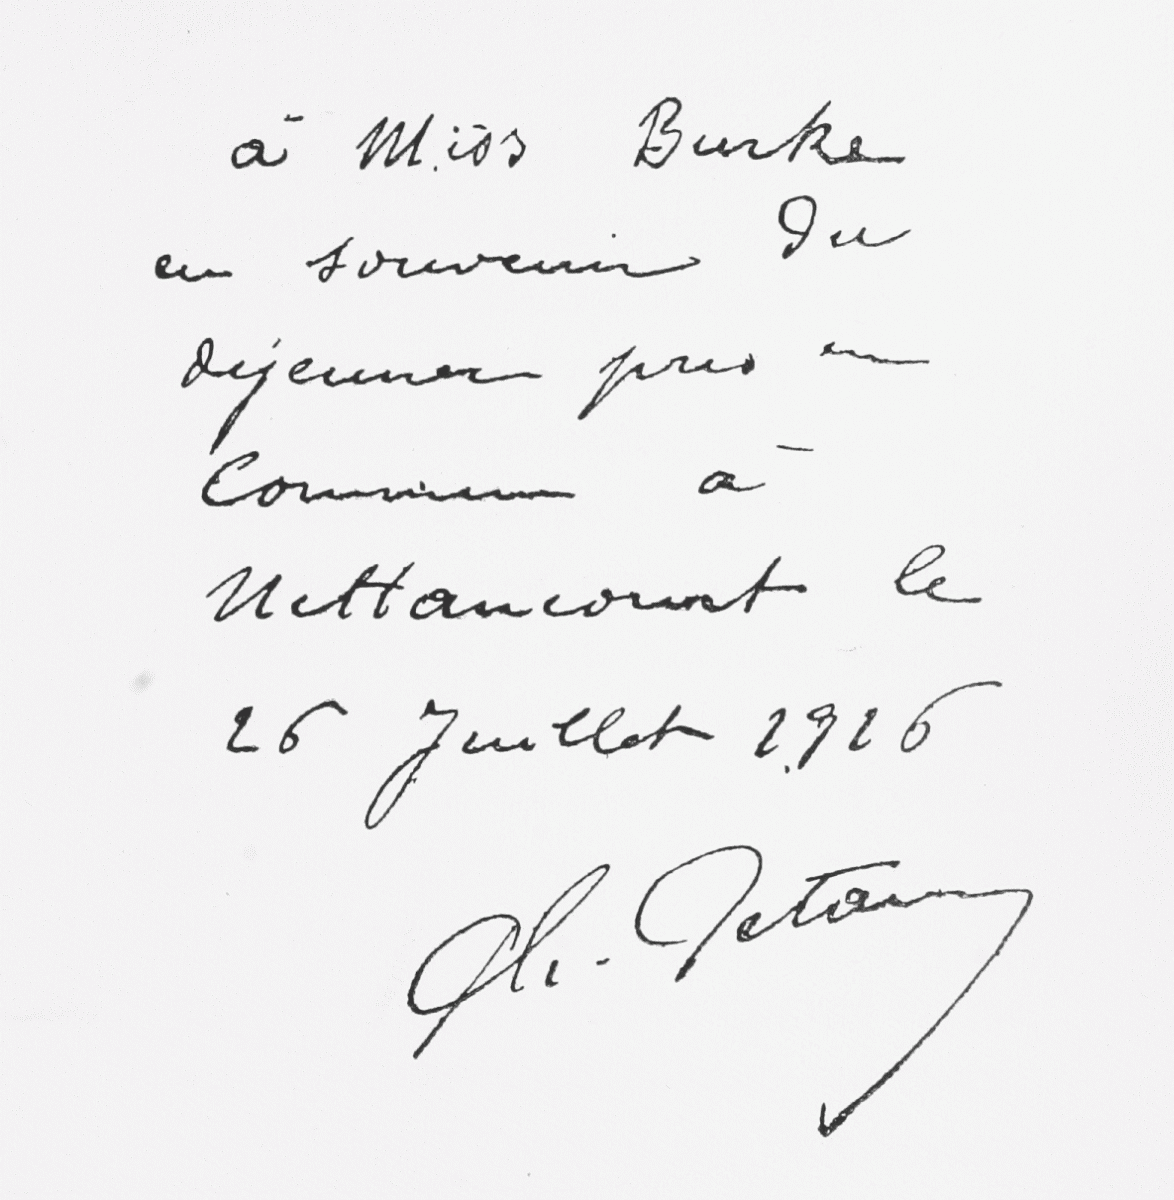 à Miss Burke
en souvenir du
déjeuner pris en
Commun à
Nettancourt le
26 Juillet 1916
Ph. Pétain